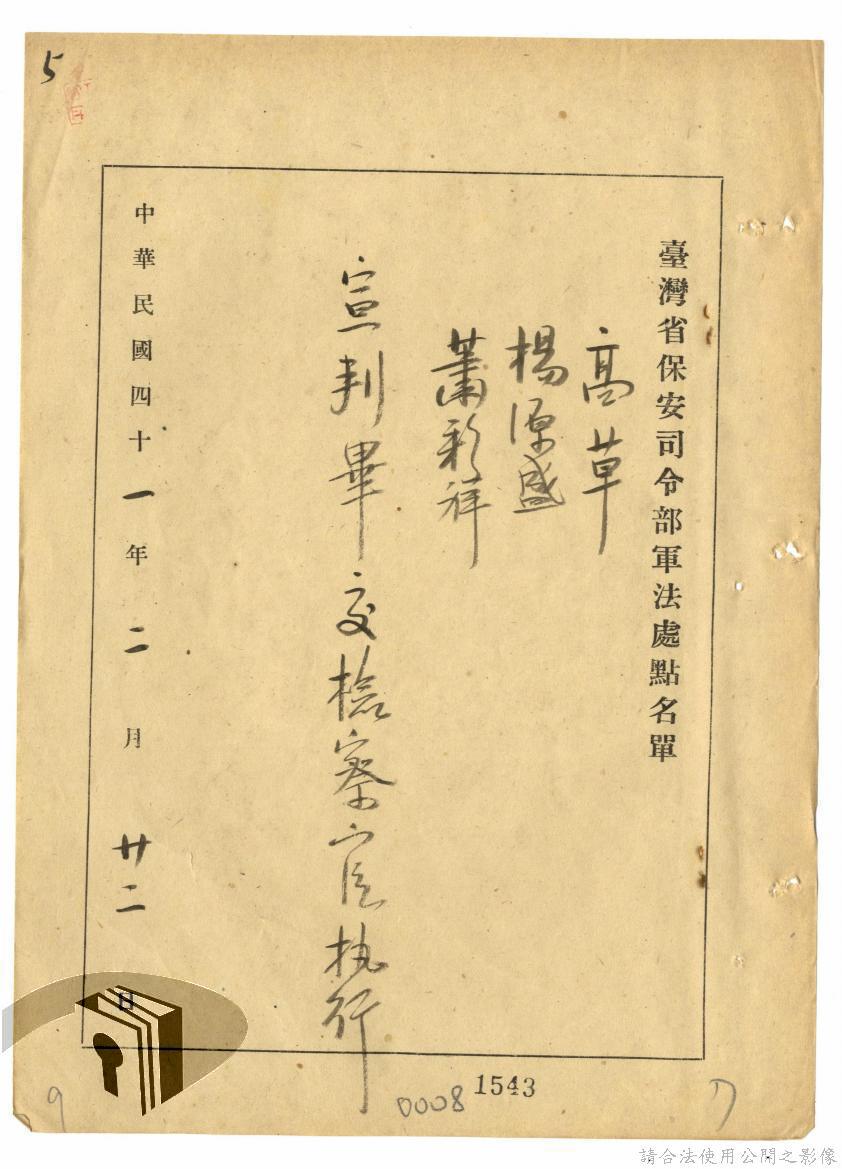 5
臺灣省保安司令部軍法處點名單
高草
楊源盛
蕭彩祥
宣判畢交檢察官执行
中華民國四十一年二月廿二日
1543
0008
9
請合法使用公開之影像